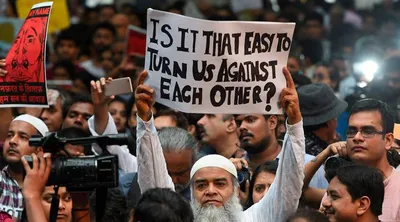 IS IT THAT EASY TO
TURN US AGAINST
EACH OTHER?